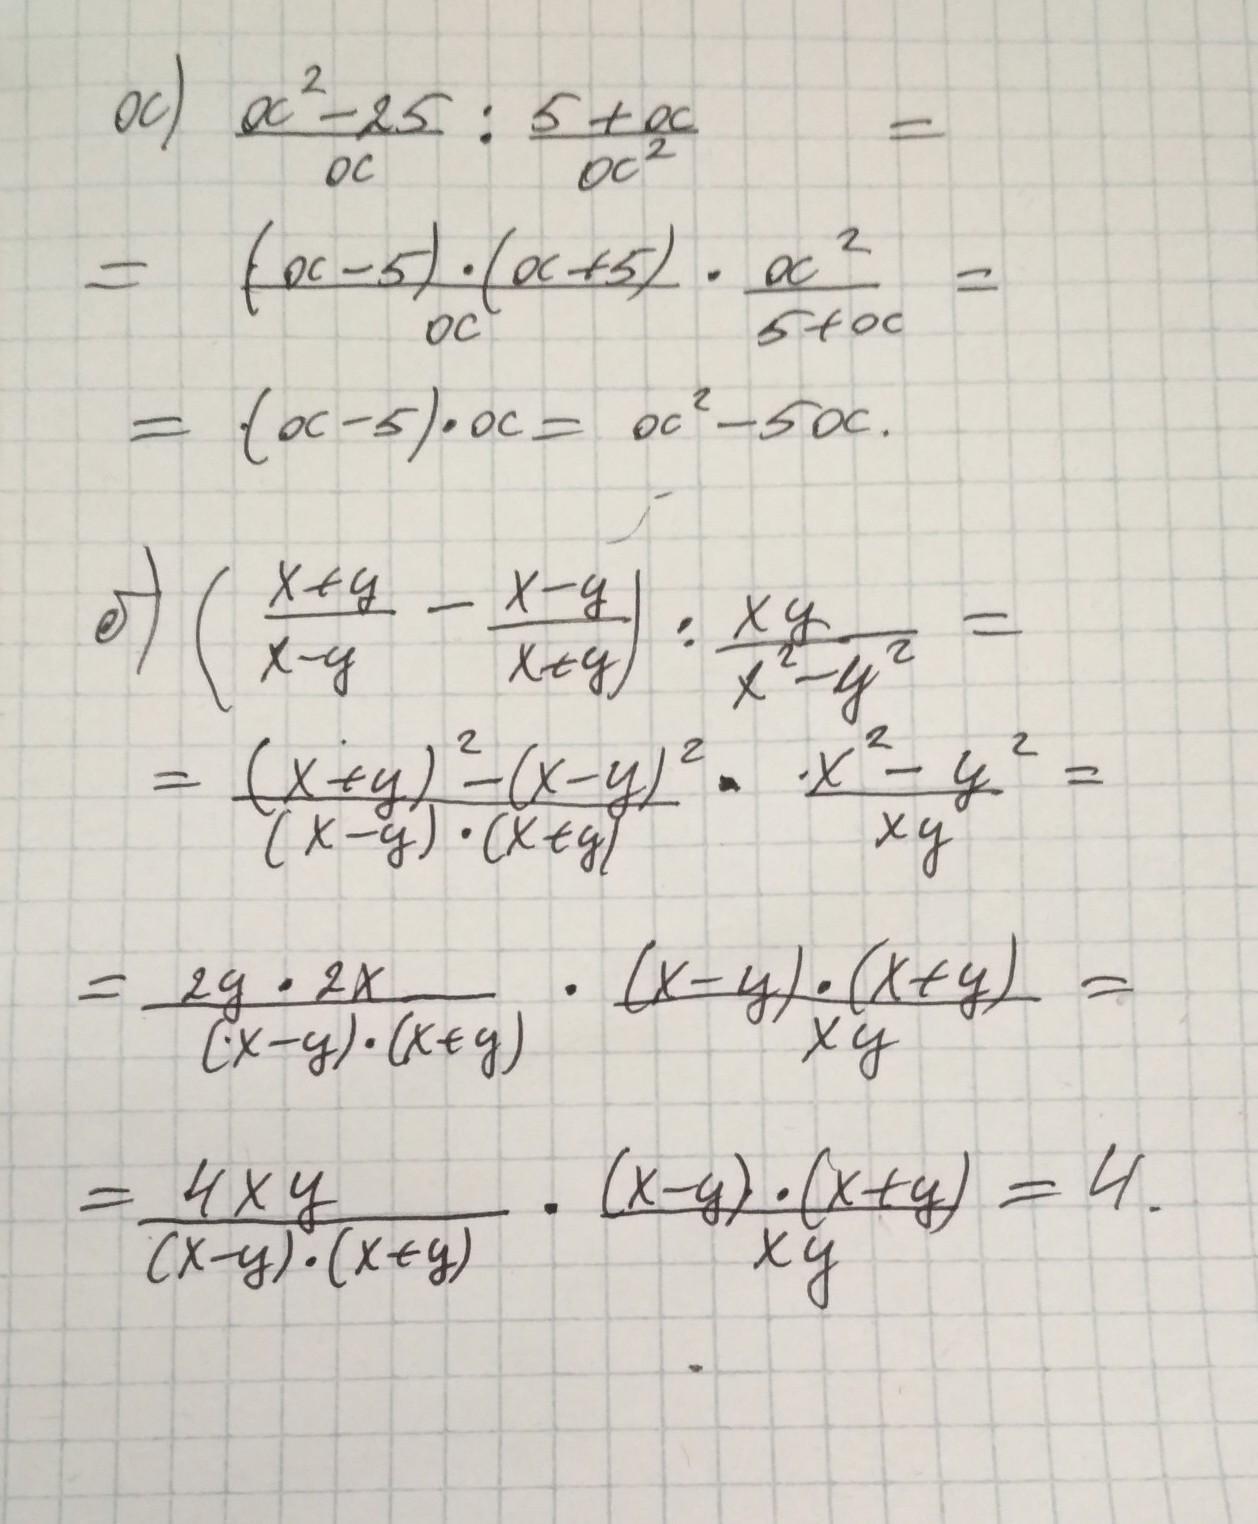 а) (a² - 25)/a : (5 + a)/a² =
= ((a - 5) · (a + 5))/a · a²/(5 + a) =
= (a - 5) · a = a² - 5a.
б) ((x + y)/(x - y) - (x - y)/(x + y)) : xy/(x² - y²) =
= ((x + y)² - (x - y)²)/((x - y) · (x + y)) · (x² - y²)/xy =
= (2y · 2x)/((x - y) · (x + y)) · ((x - y) · (x + y))/xy =
= 4xy/((x - y) · (x + y)) · ((x - y) · (x + y))/xy = 4.